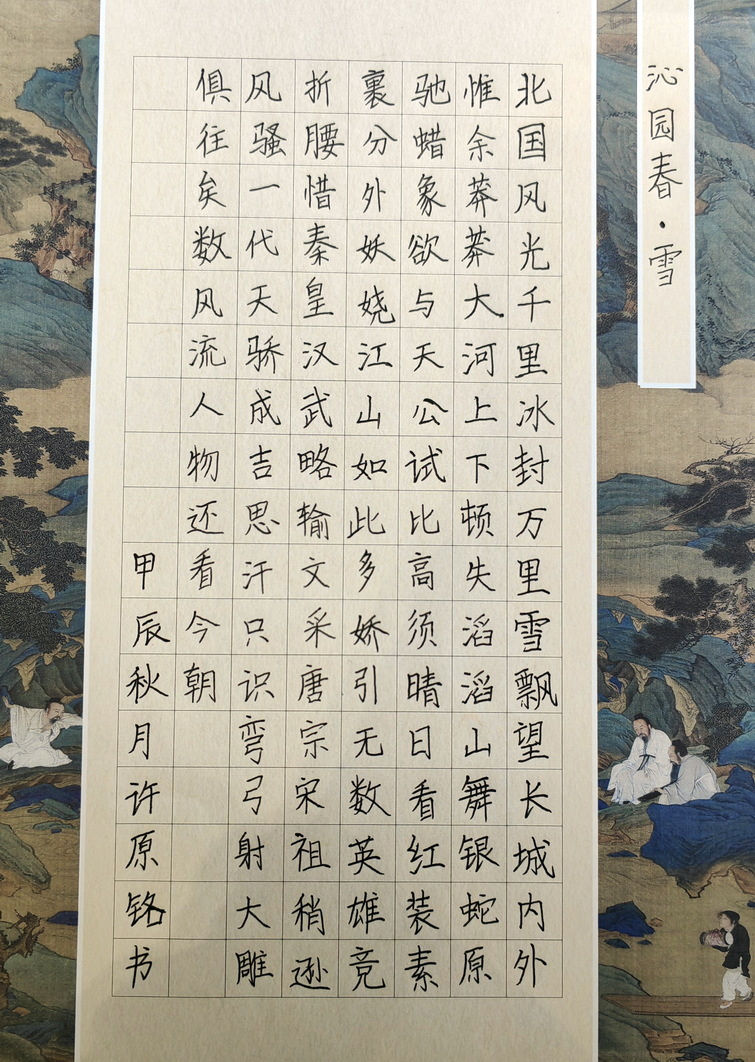 沁园春·雪
北国风光千里冰封万里雪飘望长城内外
惟余莽莽大河上下顿失滔滔山舞银蛇原
驰蜡象欲与天公试比高须晴日看红装素
裹分外妖娆江山如此多娇引无数英雄竞
折腰惜秦皇汉武略输文采唐宗宋祖稍逊
风骚一代天骄成吉思汗只识弯弓射大雕
俱往矣数风流人物还看今朝
甲辰秋月许原铭书